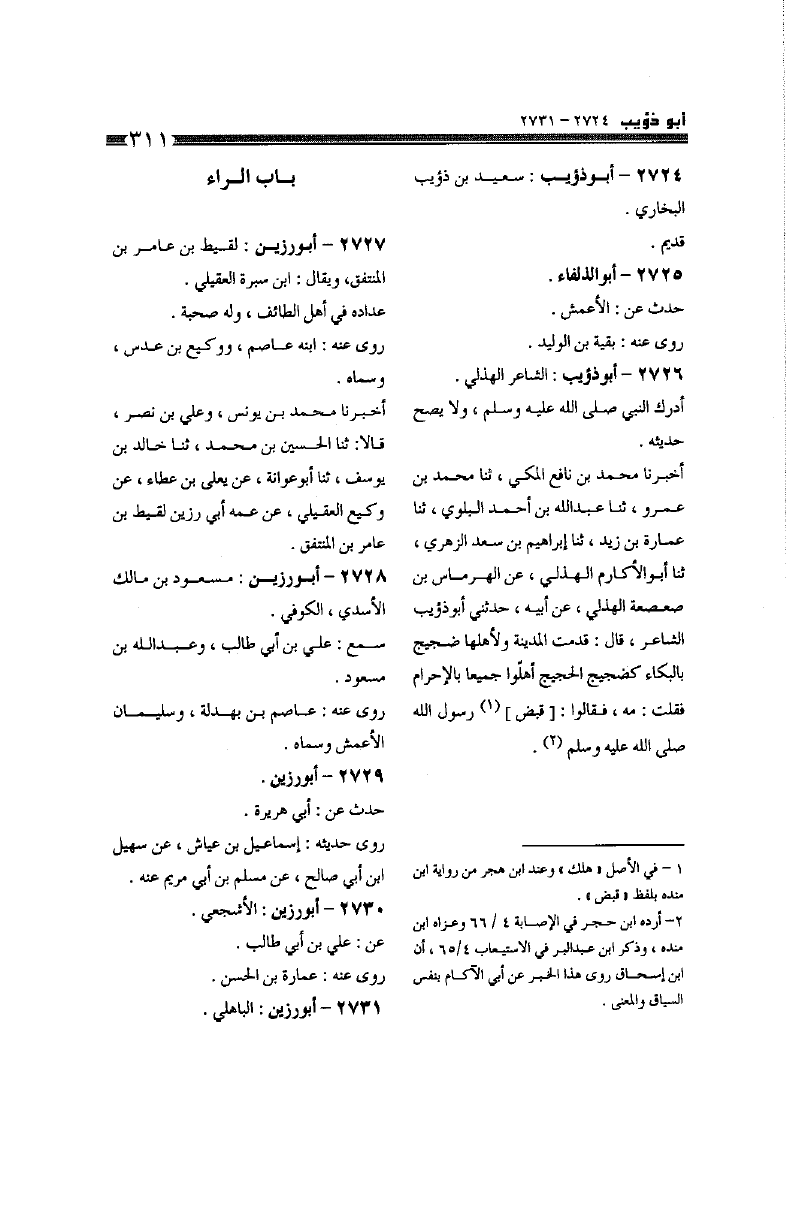 أبو ذؤيب ٢٧٢٤ - ٢٧٣١
٣١١
٢٧٢٤ - أبوذؤيب : سعيد بن ذؤيب
البخاري .
قديم .
٢٧٢٥ - أبوالذلفاء .
حدث عن : الأعمش .
روى عنه : بقية بن الوليد .
٢٧٢٦ - أبوذؤيب : الشاعر الهذلي .
أدرك النبي صلى الله عليه وسلم ، ولا يصح
حديثه .
أخبرنا محمد بن نافع المكي ، ثنا محمد بن
عمرو ، ثنا عبدالله بن أحمد البلوي ، ثنا
عمارة بن زيد ، ثنا إبراهيم بن سعد الزهري ،
ثنا أبوالأكارم الهذلي ، عن الهرماس بن
صعصعة الهذلي ، عن أبيه ، حدثني أبوذؤيب
الشاعر ، قال : قدمت المدينة ولأهلها ضجيج
بالبكاء كضجيج الحجيج أهلّوا جميعا بالإحرام
فقلت : مه ، فقالوا : [ قبض ] (١) رسول الله
صلى الله عليه وسلم (٢) .
١ - في الأصل « هلك » وعند ابن هجر من رواية ابن
منده بلفظ « قبض » .
٢- أرده ابن حجر في الإصابة ٤ / ٦٦ وعزاه ابن
منده ، وذكر ابن عبدالبر في الاستيعاب ٦٥/٤ ، أن
ابن إسحاق روى هذا الخبر عن أبي الآكام بنفس
السياق والمعنى .
باب الراء
٢٧٢٧ - أبورزين : لقيط بن عامر بن
المنتفق، ويقال : ابن سبرة العقيلي .
عداده في أهل الطائف ، وله صحبة .
روى عنه : ابنه عاصم ، ووكيع بن عدس ،
وسماه .
أخبرنا محمد بن يونس ، وعلي بن نصر ،
قالا: ثنا الحسين بن محمد ، ثنا خالد بن
يوسف ، ثنا أبوعوانة ، عن يعلى بن عطاء ، عن
وكيع العقيلي ، عن عمه أبي رزين لقيط بن
عامر بن المنتفق .
٢٧٢٨ - أبورزين : مسعود بن مالك
الأسدي ، الكوفي .
سمع : علي بن أبي طالب ، وعبدالله بن
مسعود .
روى عنه : عاصم بن بهدلة ، وسليمان
الأعمش وسماه .
٢٧٢٩ - أبورزين .
حدث عن : أبي هريرة .
روى حديثه : إسماعيل بن عياش ، عن سهيل
ابن أبي صالح ، عن مسلم بن أبي مريم عنه .
٢٧٣٠ - أبورزين : الأشجعي .
عن : علي بن أبي طالب .
روى عنه : عمارة بن الحسن .
٢٧٣١ - أبورزين : الباهلي .